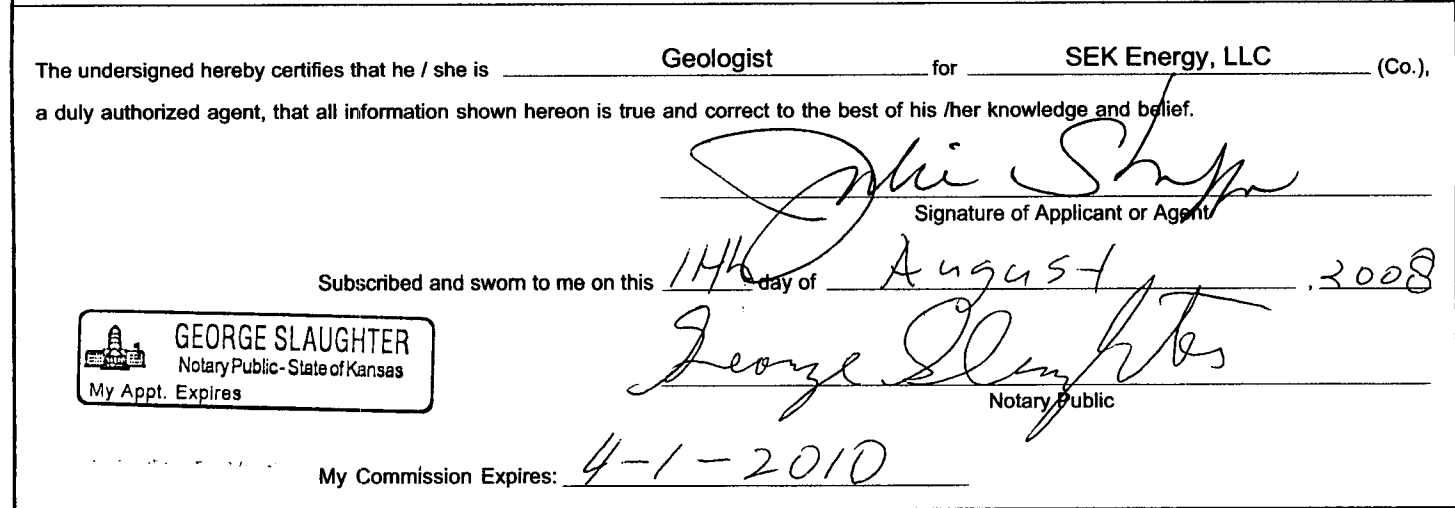 The undersigned hereby certifies that he / she is Geologist for SEK Energy, LLC (Co.),
a duly authorized agent, that all information shown hereon is true and correct to the best of his /her knowledge and belief.
Julie
Signature of Applicant or Agent
Subscribed and sworn to me on this 14th day of August , 2008
GEORGE SLAUGHTER
Notary Public - State of Kansas
My Appt. Expires
George Slaughter
Notary Public
My Commission Expires: 4-1-2010